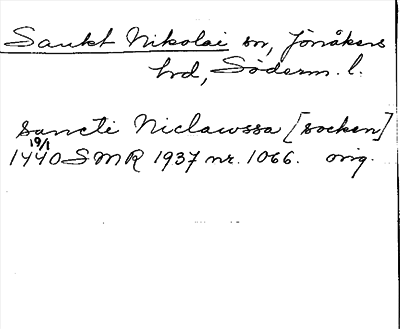 Sankt Nikolai sn, Jönåkers
hd, Söderm. l.
sancti Niclawssa [socken]
19/1
1440 SMR 1937 nr. 1066. orig.